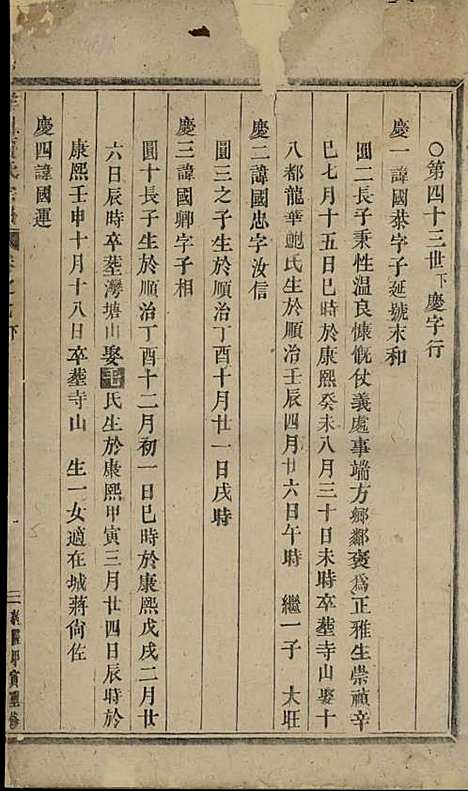 ○第四十三世下慶字行
慶一諱國恭字子延號未和
圓二長子秉性溫良慷慨仗義處事端方鄉鄰褒為正雅生崇禎辛
巳七月十五日巳時於康熙癸未八月三十日未時卒塟寺山娶十
八都龍華鮑氏生於順治壬辰四月廿六日午時　繼一子　大旺
慶二諱國忠字汝信
圓三之子生於順治丁酉十月廿一日戌時
慶三諱國卿字子相
圓十長子生於順治丁酉十二月初一日巳時於康熙戊戌二月廿
六日辰時卒塟灣塘山娶王氏生於康熙甲寅三月廿四日辰時於
康熙壬申十月十八日卒塟寺山　生一女適在城蔣尙佐
慶四諱國運